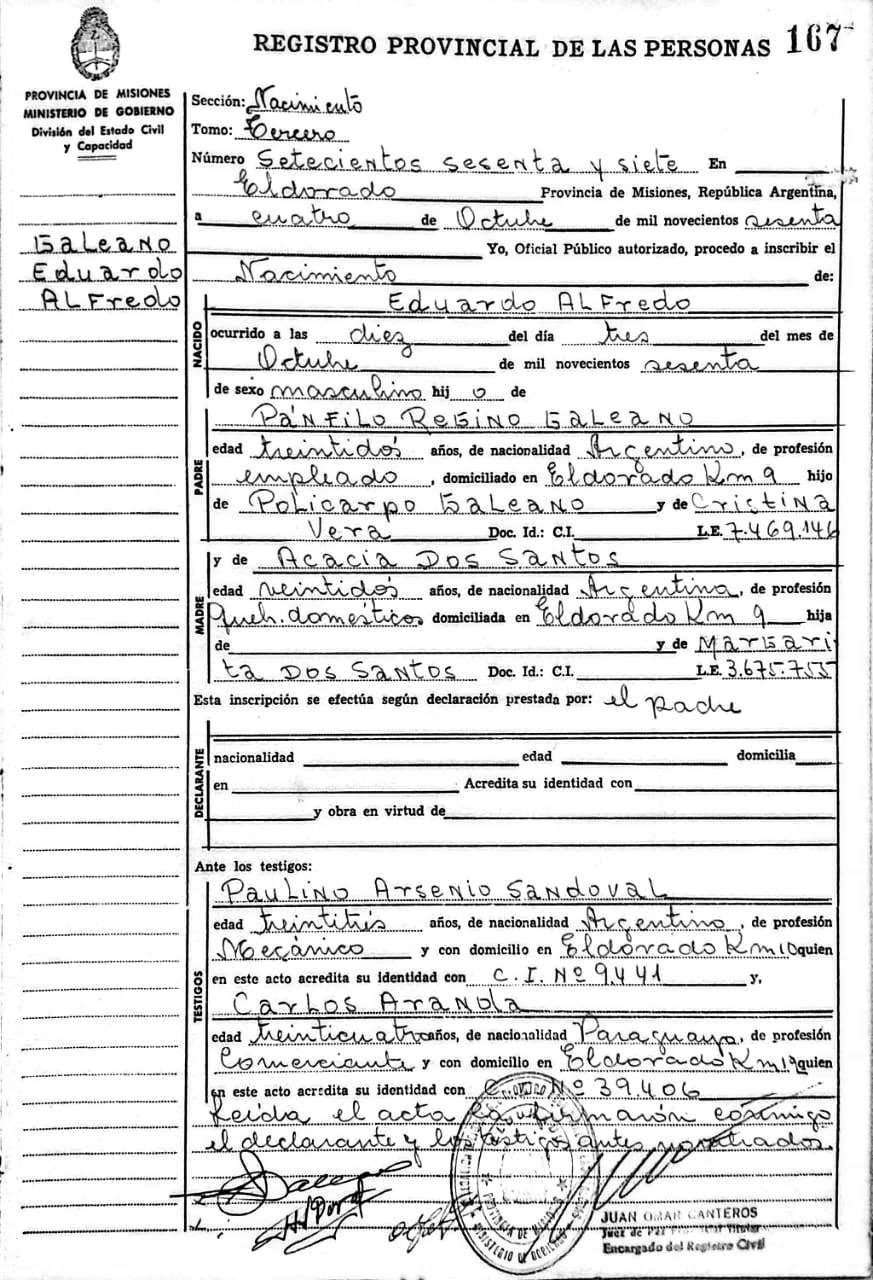 REGISTRO PROVINCIAL DE LAS PERSONAS 167
PROVINCIA DE MISIONES
MINISTERIO DE GOBIERNO
División del Estado Civil
y Capacidad
GALEANO
Eduardo
ALFredo
Sección: Nacimiento
Tomo: Tercero
Número Setecientos sesenta y siete En
Eldorado Provincia de Misiones, República Argentina,
a cuatro de Octubre de mil novecientos sesenta
Yo, Oficial Público autorizado, procedo a inscribir el
Nacimiento de:
Eduardo ALFredo
NACIDO
ocurrido a las diez del día tres del mes de
Octubre de mil novecientos sesenta
de sexo masculino hij o de
PÁNFILO REGINO GALEANO
PADRE
edad treintidós años, de nacionalidad Argentino, de profesión
empleado, domiciliado en Eldorado Km 9 hijo
de Policarpo GALEANO y de CristiNA
Vera Doc. Id.: C.I. L.E. 7.469.146
y de Acacia Dos Santos
MADRE
edad veintidós años, de nacionalidad Argentina, de profesión
Queh. domésticos domiciliada en Eldorado Km 9 hija
de y de MARGARI
ta Dos Santos Doc. Id.: C.I. L.E. 3.675.755
Esta inscripción se efectúa según declaración prestada por: el padre
DECLARANTE
nacionalidad edad domicilia
en Acredita su identidad con
y obra en virtud de
Ante los testigos:
PauLiNO ArseNio SaNdovaL
TESTIGOS
edad treintitrés años, de nacionalidad Argentino, de profesión
Mecánico y con domicilio en Eldorado Km 10 quien
en este acto acredita su identidad con C. I. Nº 9.441 y,
Carlos AraNda
edad treinticuatro años, de nacionalidad Paraguaya, de profesión
Comerciante y con domicilio en Eldorado Km 19 quien
en este acto acredita su identidad con Nº 39.406
Leida el acta la firmarón conmigo
el declarante y los testigos antes nombrados.
JUAN OMAR CANTEROS
Juez de Paz Titular
Encargado del Registro Civil